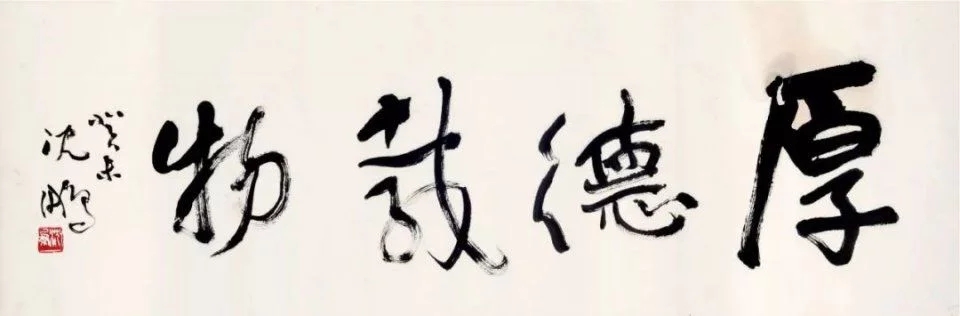 厚德载物
癸未
沈鹏